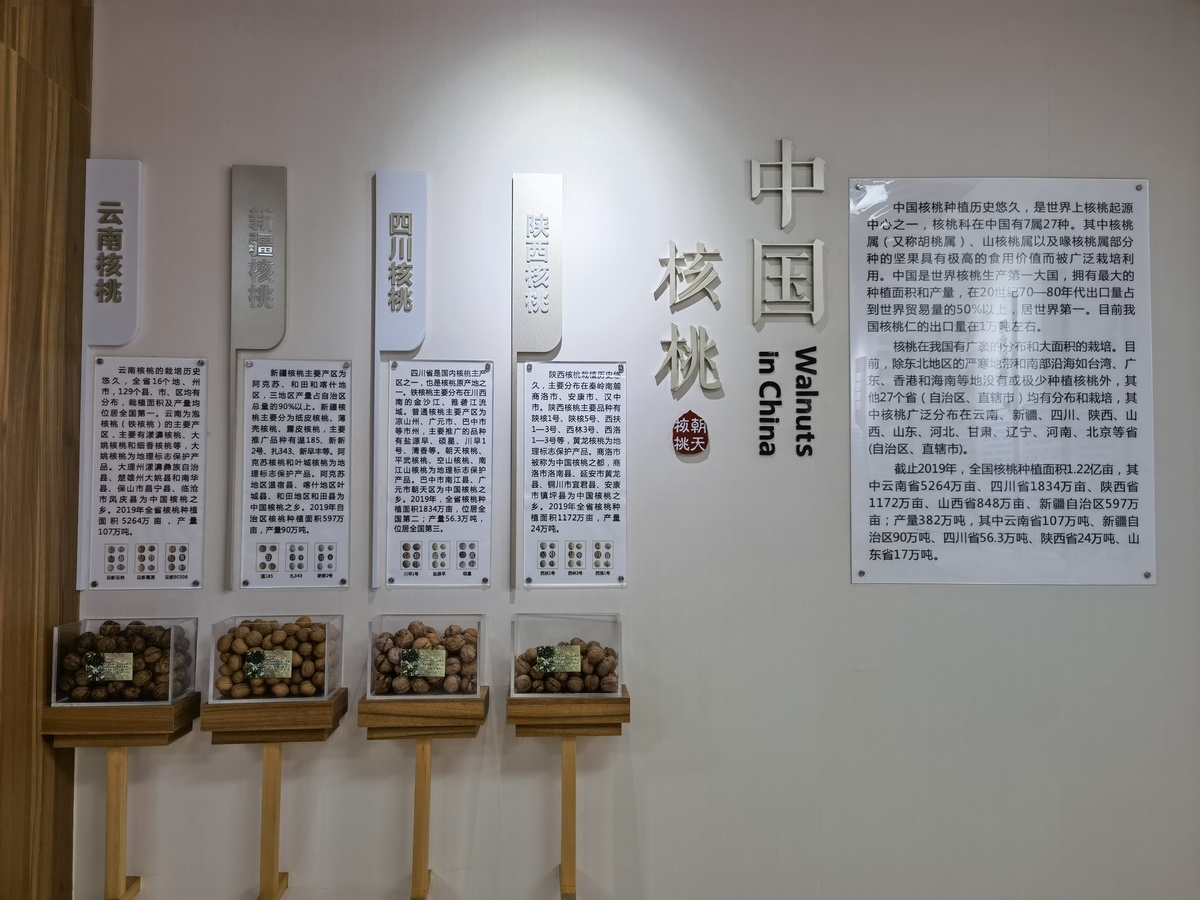 云南核桃
云南核桃的栽培历史
悠久，全省16个地、州
市，129个县、市、区均有
分布，栽植面积及产量均
位居全国第一。云南为泡
核桃（铁核桃）的主要产
区，主要有漾濞核桃、大
姚核桃和细香核桃等，大
姚核桃为地理标志保护产
品。大理州漾濞彝族自治
县、楚雄州大姚县和南华
县、保山市昌宁县、临沧
市凤庆县为中国核桃之
乡。2019年全省核桃种植
面积5264万亩，产量
107万吨。
新疆核桃
新疆核桃主要产区为
阿克苏、和田和喀什地
区，三地区产量占自治区
总量的90%以上。新疆核
桃主要分为纸皮核桃、薄
壳核桃、露皮核桃，主要
推广品种有温185、新新
2号、扎343、新早丰等。阿
克苏核桃和叶城核桃为地
理标志保护产品。阿克苏
地区温宿县、喀什地区叶
城县、和田地区和田县为
中国核桃之乡。2019年自
治区核桃种植面积597万
亩，产量90万吨。
温185 扎343 新新2号
四川核桃
四川省是国内核桃主产
区之一，也是核桃原产地之
一。铁核桃主要分布在川西
南的金沙江、雅砻江流
域。普通核桃主要产区为
凉山州、广元市、巴中市
等市州，主要推广的品种
有盐源早、硕星、川早1
号、清香等。朝天核桃、
平武核桃、空山核桃、南
江山核桃为地理标志保护
产品。巴中市南江县、广
元市朝天区为中国核桃之
乡。2019年，全省核桃种
植面积1834万亩，位居全
国第二；产量56.3万吨，
位居全国第三。
川早1号 盐源早 硕星
陕西核桃
陕西核桃栽植历史悠
久，主要分布在秦岭南麓
商洛市、安康市、汉中
市。陕西核桃主要品种有
陕核1号、陕核5号、西扶
1—3号、西林3号、西洛
1—3号等，黄龙核桃为地
理标志保护产品。商洛市
被称为中国核桃之都，商
洛市洛南县、延安市黄龙
县、铜川市宜君县、安康
市镇坪县为中国核桃之
乡。2019年全省核桃种植
面积1172万亩，产量
24万吨。
西扶2号 西林3号 西洛1号
中国
核桃
朝天
核桃
Walnuts
in China
中国核桃种植历史悠久，是世界上核桃起源
中心之一，核桃科在中国有7属27种。其中核桃
属（又称胡桃属）、山核桃属以及喙核桃属部分
种的坚果具有极高的食用价值而被广泛栽培利
用。中国是世界核桃生产第一大国，拥有最大的
种植面积和产量，在20世纪70—80年代出口量占
到世界贸易量的50%以上，居世界第一。目前我
国核桃仁的出口量在1万吨左右。
核桃在我国有广袤的分布和大面积的栽培。目
前，除东北地区的严寒地带和南部沿海如台湾、广
东、香港和海南等地没有或极少种植核桃外，其
他27个省（自治区、直辖市）均有分布和栽培，其
中核桃广泛分布在云南、新疆、四川、陕西、山
西、山东、河北、甘肃、辽宁、河南、北京等省
(自治区、直辖市)。
截止2019年，全国核桃种植面积1.22亿亩，其
中云南省5264万亩、四川省1834万亩、陕西省
1172万亩、山西省848万亩、新疆自治区597万
亩；产量382万吨，其中云南省107万吨、新疆自
治区90万吨、四川省56.3万吨、陕西省24万吨、山
东省17万吨。